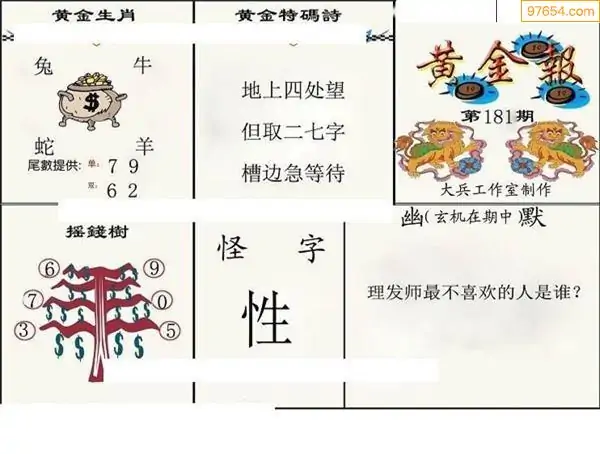 97654.com
黄金生肖
兔 牛
$
蛇 羊
尾數提供: 单: 7 9
双: 6 2
黄金特碼詩
地上四处望
但取二七字
槽边急等待
黄金報
第181期
大兵工作室制作
摇錢樹
6 9
7 0
3 5
$ $ $ $ $ $ $ $ $ $
怪 字
性
幽(玄机在期中)默
理发师最不喜欢的人是谁?